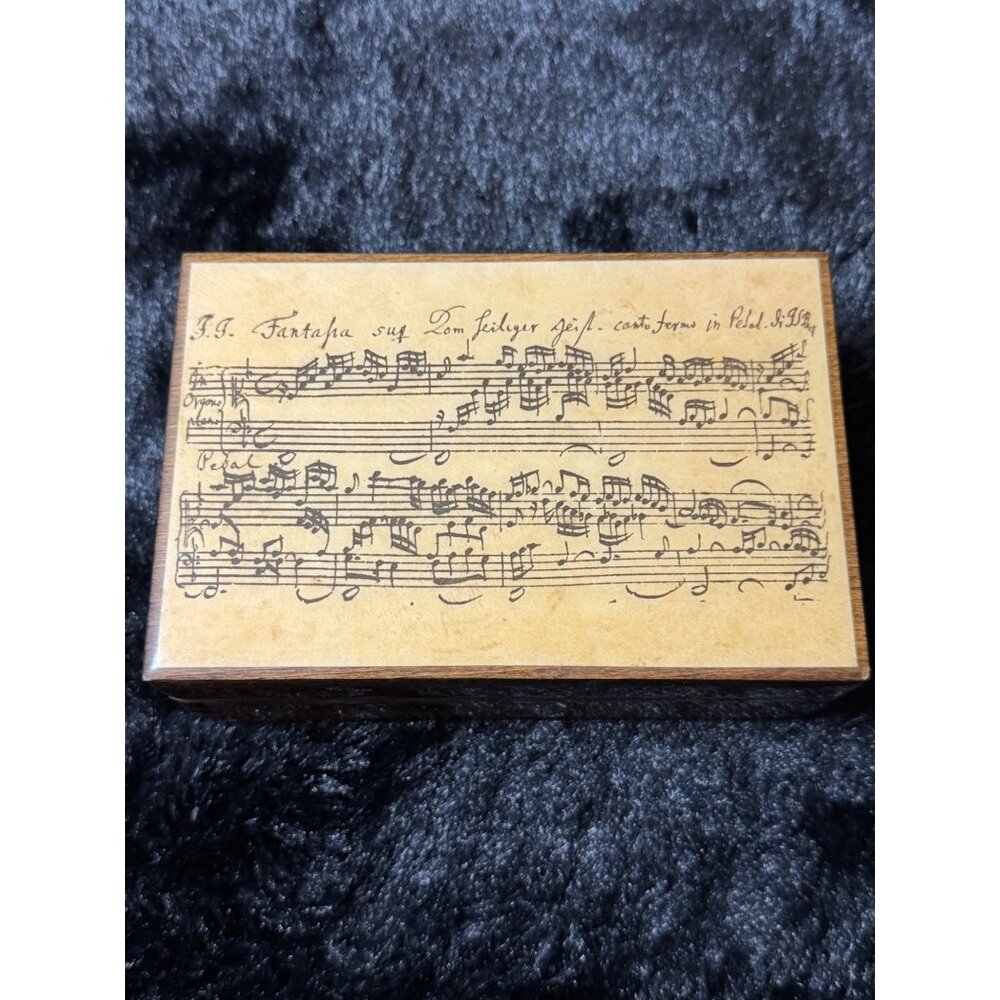 J.J. Fantasia sup Kom heiliger Geist. canto fermo in Pedal. di JSB
In
Organo
pleno
Pedal